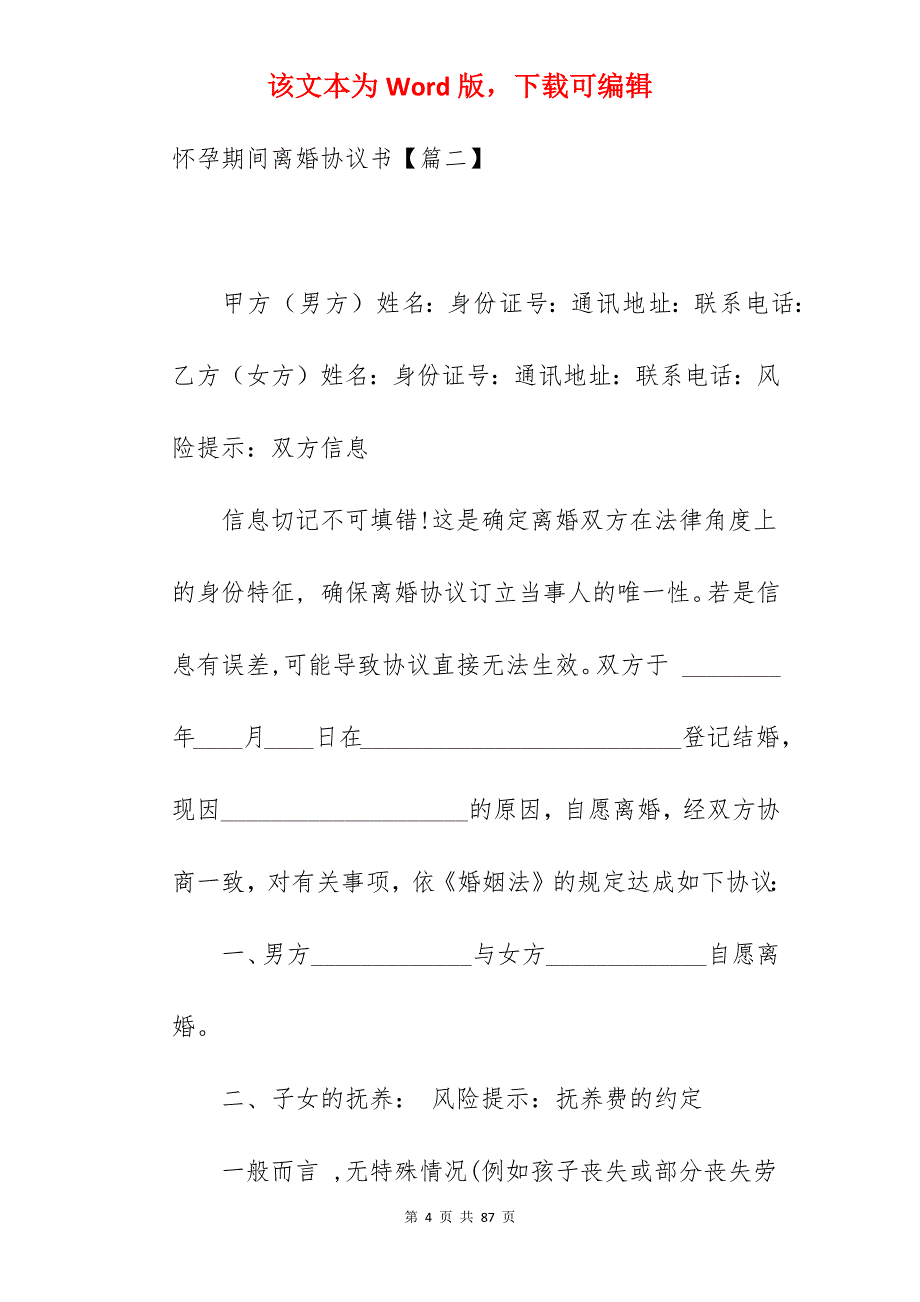 该文本为 Word 版，下载可编辑
怀孕期间离婚协议书【篇二】
甲方（男方）姓名：身份证号：通讯地址：联系电话：
乙方（女方）姓名：身份证号：通讯地址：联系电话：风
险提示：双方信息
信息切记不可填错!这是确定离婚双方在法律角度上
的身份特征, 确保离婚协议订立当事人的唯一性。若是信
息有误差,可能导致协议直接无法生效。双方于 ________
年____月____日在__________________________登记结婚，
现因____________________的原因，自愿离婚，经双方协
商一致，对有关事项，依《婚姻法》的规定达成如下协议：
一、男方_____________与女方_____________自愿离
婚。
二、子女的抚养： 风险提示：抚养费的约定
一般而言 ,无特殊情况(例如孩子丧失或部分丧失劳
第 4 页 共 87 页